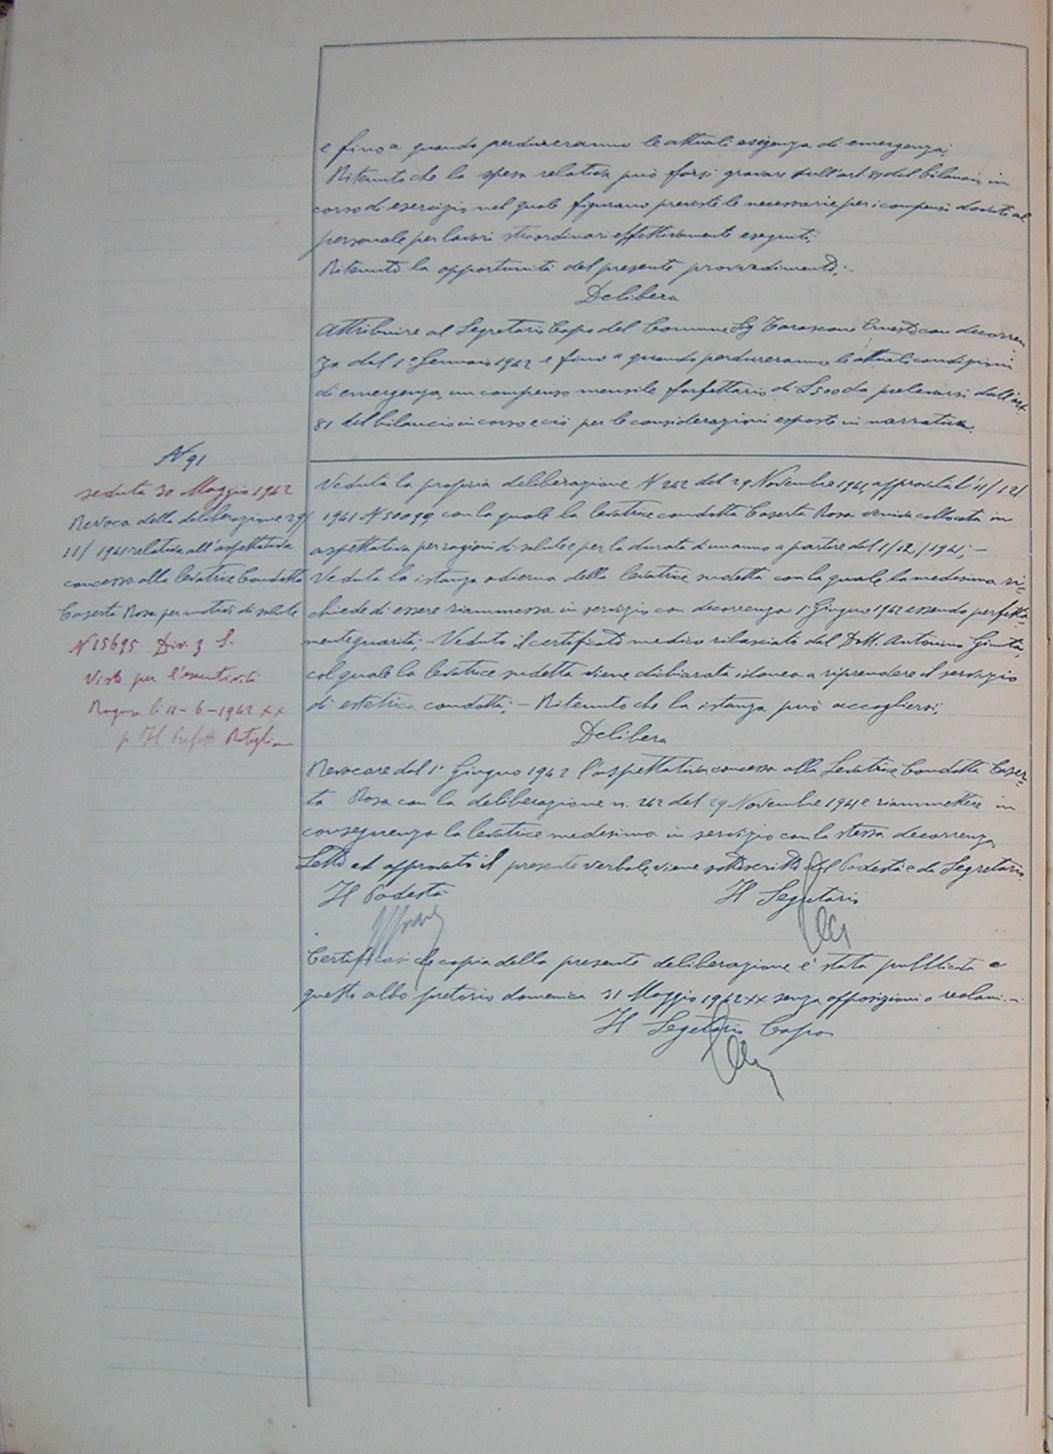 e fino a quando perdureranno le attuali esigenze di emergenza;
Ritenuto che la spesa relativa può farsi gravare sull'art. 81 del bilancio in
corso di esercizio nel quale figurano previste le necessarie per i compensi dovuti al
personale per lavori straordinari effettivamente eseguiti;
Ritenuto la opportunità del presente provvedimento;
Delibera
Attribuire al Segretario Capo del Comune Sig. Tarascone Ernesto con decorren
za dal 1° Gennaio 1942 e fino a quando perdureranno le attuali condizioni
di emergenza, un compenso mensile forfettario di L 500 da prelevarsi dall'art.
81 del bilancio in corso e ciò per le considerazioni esposte in narrativa.
N 91
seduta 30 Maggio 1942
Revoca della deliberazione 29/
11/1941 relativa all'aspettativa
concessa alla levatrice Condotta
Caserta Rosa per motivi di salute
N 15695 Div. 3 S.
Visto per l'esecutività
Ragusa li 11-6-1942 XX
p. Il Prefetto
Veduta la propria deliberazione N 242 del 29 Novembre 1941, approvata l'11/12/
1941 N 50099 con la quale la levatrice condotta Caserta Rosa veniva collocata in
aspettativa per ragioni di salute e per la durata di un anno a partire dal 1/12/1941; -
Veduta la istanza odierna della levatrice sudetta con la quale la medesima ri-
chiede di essere riammessa in servizio con decorrenza 1° Giugno 1942 essendo perfetta-
mente guarita; - Veduto il certificato medico rilasciato dal Dott. Antonino Giunta,
col quale la levatrice sudetta viene dichiarata idonea a riprendere il servizio
di ostetrica condotta; - Ritenuto che la istanza può accogliersi;
Delibera
Revocare dal 1° Giugno 1942 l'aspettativa concessa alla Levatrice Condotta Caser-
ta Rosa con la deliberazione n. 242 del 29 Novembre 1941 e riammettere in
conseguenza la levatrice medesima in servizio con la stessa decorrenza.
Letto ed approvato il presente verbale, viene sottoscritto dal Podestà e da Segretario.
Il Podestà Il Segretario
Certificasi che copia della presente deliberazione è stata pubblicata a
questo albo pretorio domenica 31 Maggio 1942 XX senza opposizioni o reclami. -
Il Segretario Capo